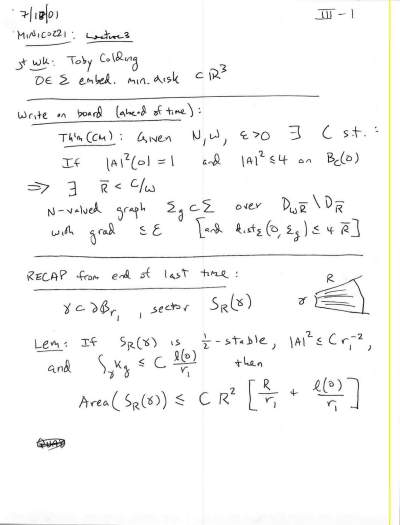 7/18/01 III - 1
MINICOZZI: Lecture 3
jt wk: Toby Colding
0 ∈ Σ embed. min. disk ⊂ ℝ³
Write on board (ahead of time):
Thm (CM): Given N, ω, ε>0 ∃ C s.t.:
If |A|²(0) = 1 and |A|² ≤ 4 on B_C(0)
⇒ ∃ R̄ < C/ω
N-valued graph Σ_g ⊂ Σ over D_{ωR̄} \ D_R̄
with grad ≤ ε [and dist_Σ(0, Σ_g) ≤ 4 R̄]
RECAP from end of last time:
R
γ ⊂ ∂B_{r₁}, sector S_R(γ) γ
Lem: If S_R(γ) is ½-stable, |A|² ≤ C r₁⁻²,
and ∫_γ k_g ≤ C ℓ(γ)/r₁ then
Area(S_R(γ)) ≤ C R² [R/r₁ + ℓ(γ)/r₁]